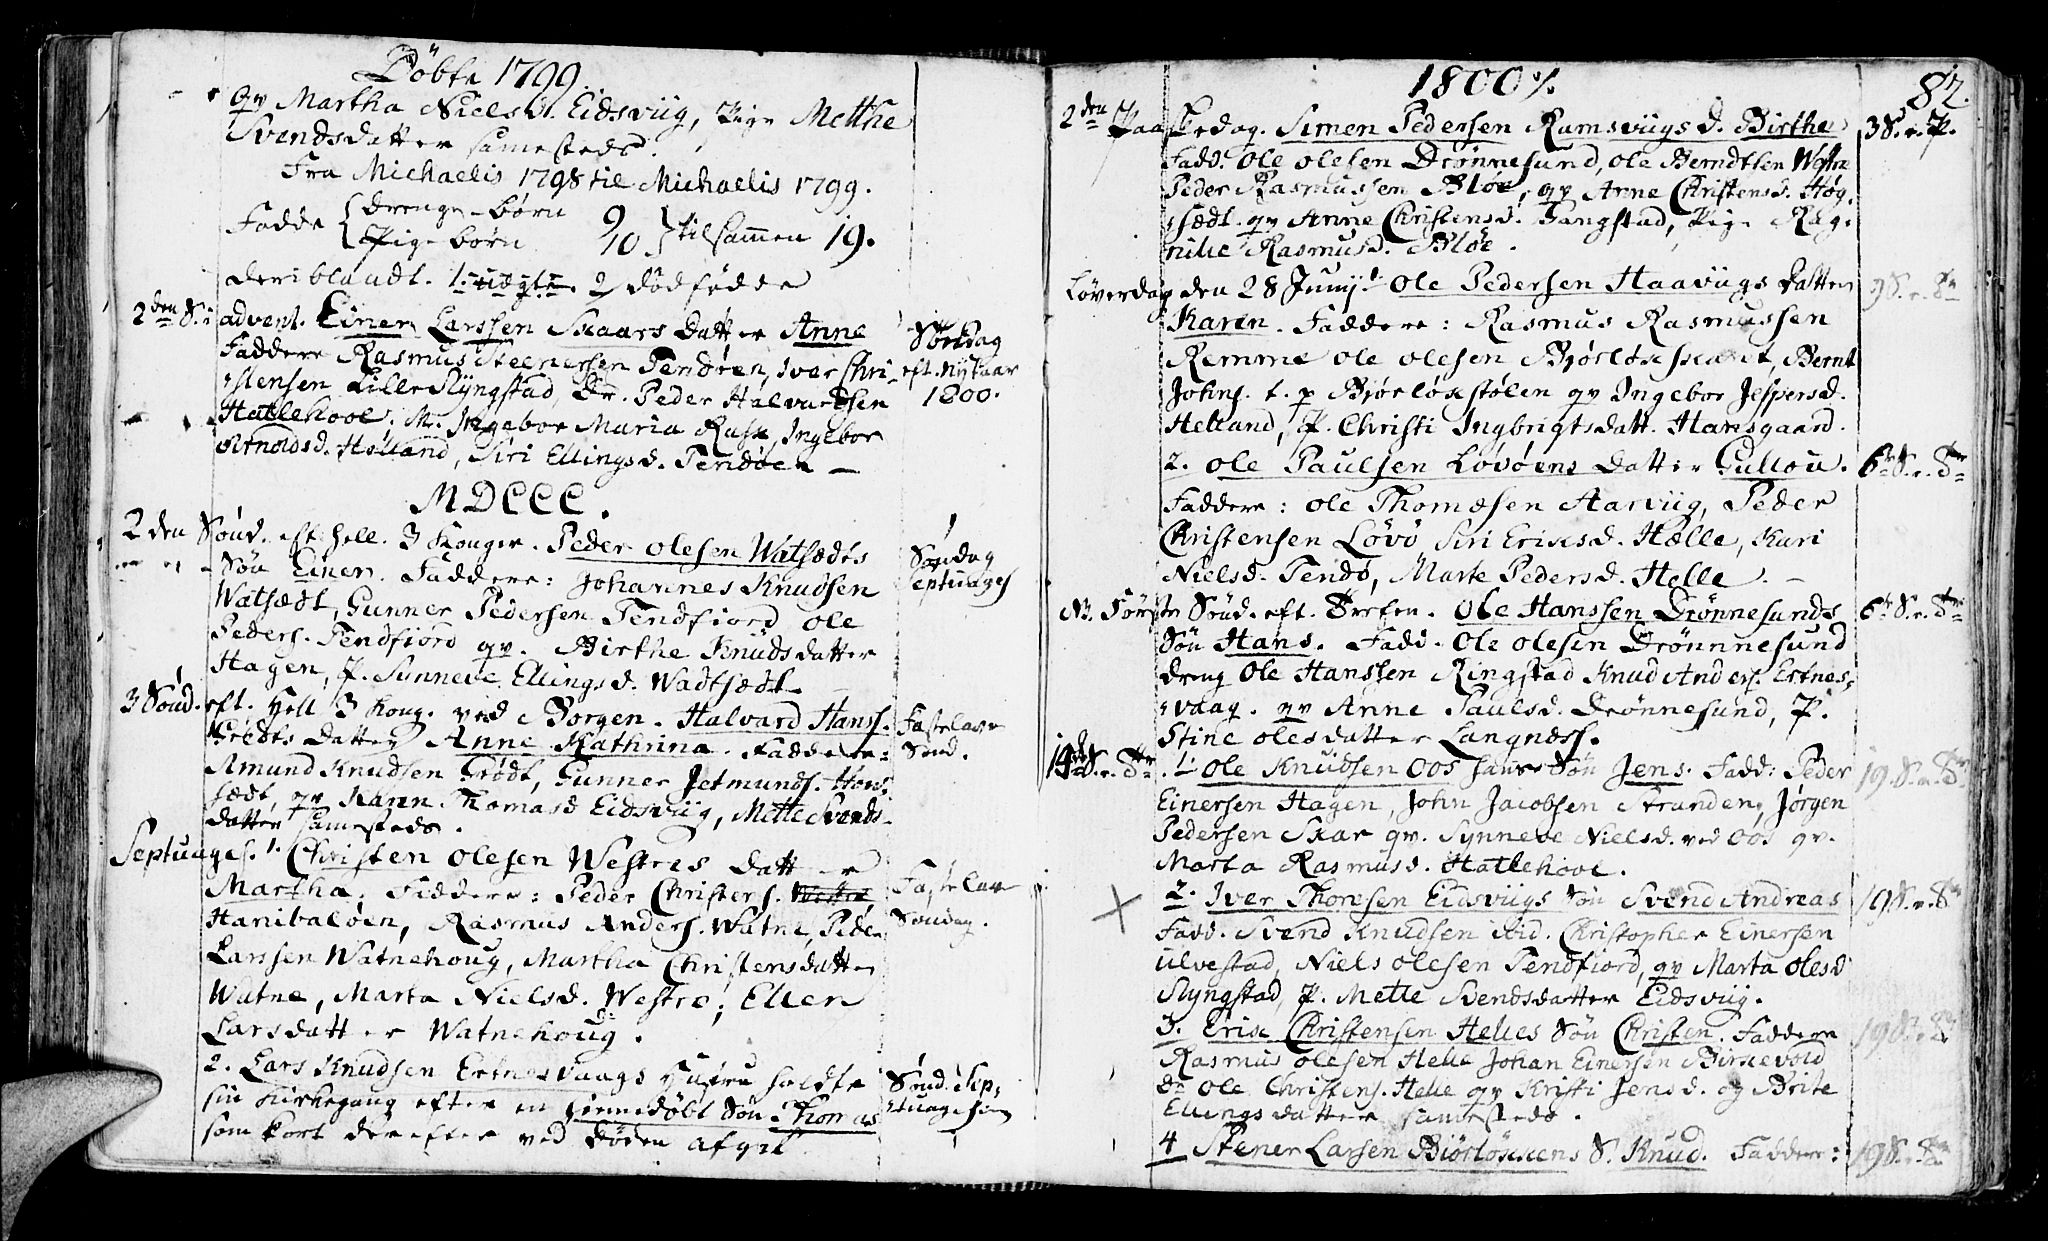 Döbte 1799.
qv Martha Nielsd. Eidsviig, Pige Metthe
Svendsdatter samesteds.
Fra Michaelis 1798 til Michaelis 1799.
Fødde {Drenge-börn 9
{Pige börn 10 } tilsammen 19.
deriblandt. 1. uægte. 2 dödfödde
2den S. i advent. Einer Larssen Skaars Datter Anne
Faddere Rasmus Steenersen Tendöen, Iver Chri-
stensen Lille Slyngstad, Dr. Peder Halvardsen
Hatlehole. M. Ingebor Maria Rask, Ingebor
Arnoldsd. Helland, Siri Ellingsd. Tendöen –
Söndag
eft. Nytaar
1800.
MDCCC.
2 den Sönd. eft. hell. 3 Konger. Peder olesen Watsædts
Sön Einer. Faddere: Johannes Knudsen
Watsædt, Gunner Pedersen Tendfiord ole
Peders. Tendfiord qv. Birthe Knudsdatter
Hagen, P. Synneve Ellingsd. Wadtsædt
Söndag
Septuages
3 Sönd. eft. Hell 3 Kong. ved Borgen. Halvard Hanss.
Grödts Datter Anne Kathrina. Faddere:
Amund Knudsen Grödt, Gunner Jetmunds. How-
sædt, qv Karen Thomasd Eidsviig, Mette Svends-
datter samesteds.
Fastelavns
Sönd.
Septuages. 1. Christen olesen Westres datter
Martha. Faddere: Peder Christens. Westre
Hanibalöen, Rasmus Anders. Watne, Peder
Larssen Watnehoug, Martha Christensdatter
Watne, Marta Nielsd. Westre, Ellen
Larsdatter Watnehoug.
Fastelavn
Söndag.
2. Lars Knudsen Ertnesvaags Hustru holdte
sin Kirkegang efter en hiemedöbt Sön Thomas
som kort derefter ved Döden afgik
Sönd. Sep-
tuagesim
1800.
82.
2den Paaskedag. Simen Pedersen Ramsviigs D. Birthe
Fadd. Ole olesen Drönnesund, ole Berndtsen Westre
Peder Rasmussen Blöe, qv Anne Christensd. Hög-
sædt. qv Anne Christensd. Tangstad, Pige Rag-
nilie Rasmusd. Blöe.
3 S. e. P.
Löverdag den 28 Junij 1. Ole Pedersen Haavigs Datter
Karen. Faddere: Rasmus Rasmussen
Remme ole olesen Bjorlöxskaret, Bernt
Johns. t. p Bjorlöxstölen qv Ingebor Jespersd.
Helland, P. Christi Ingbrigtsdatt. Haresgaard.
2. ole Paulsen Lövöens Datter Gullou.
Faddere: ole Thomæsen Aarviig, Peder
Christensen Lövö Siri Ericsd. Hælle, Kari
Nielsd. Tendö, Marte Pedersd. Helle. –
6te S. e. Tr
N. Förste Sönd. eft. Trefen. Ole Hanssen Drönnesunds
Sön Hans. Fadd. Ole olesen Drönnesund
dreng Ole Hanssen Ringstad Knud Anders. Ertnes-
vaag. qv Anne Paulsd. Drönnesund, P.
Stine olesdatter Langnæss.
6te S. e. Tr
19de S. e. Tr. 1. Ole Knudsen Oos hans Sön Jens. Fadd: Peder
Einersen Hagen, John Jacobsen Stranden, Jörgen
Pedersen Skar qv. Synneve Nielsd. ved Oos qv.
Marta Rasmusd. Hatlehole.
19. S. e. Tr
2. Iver Thoresen Eidsviigs Sön Svend Andreas
Fadd. Svend Knudsen ibid. Christopher Einersen
Ulvestad, Niels olesen Tendfiord, qv Marta olesd
Slyngstad, P. Mette Svendsdatter Eidsviig.
19 S. e. Tr
3. Eric Christensen Helles Sön Christen. Faddere
Rasmus olesen Helle Johan Einersen Birkevold
Dr ole Christens. Helle qv Kristi Jensd. og Brite
Ellingsdatter samesteds.
4 Stener Larsen Biörlökkens S. Knud. Faddere:
19 S. e. Tr